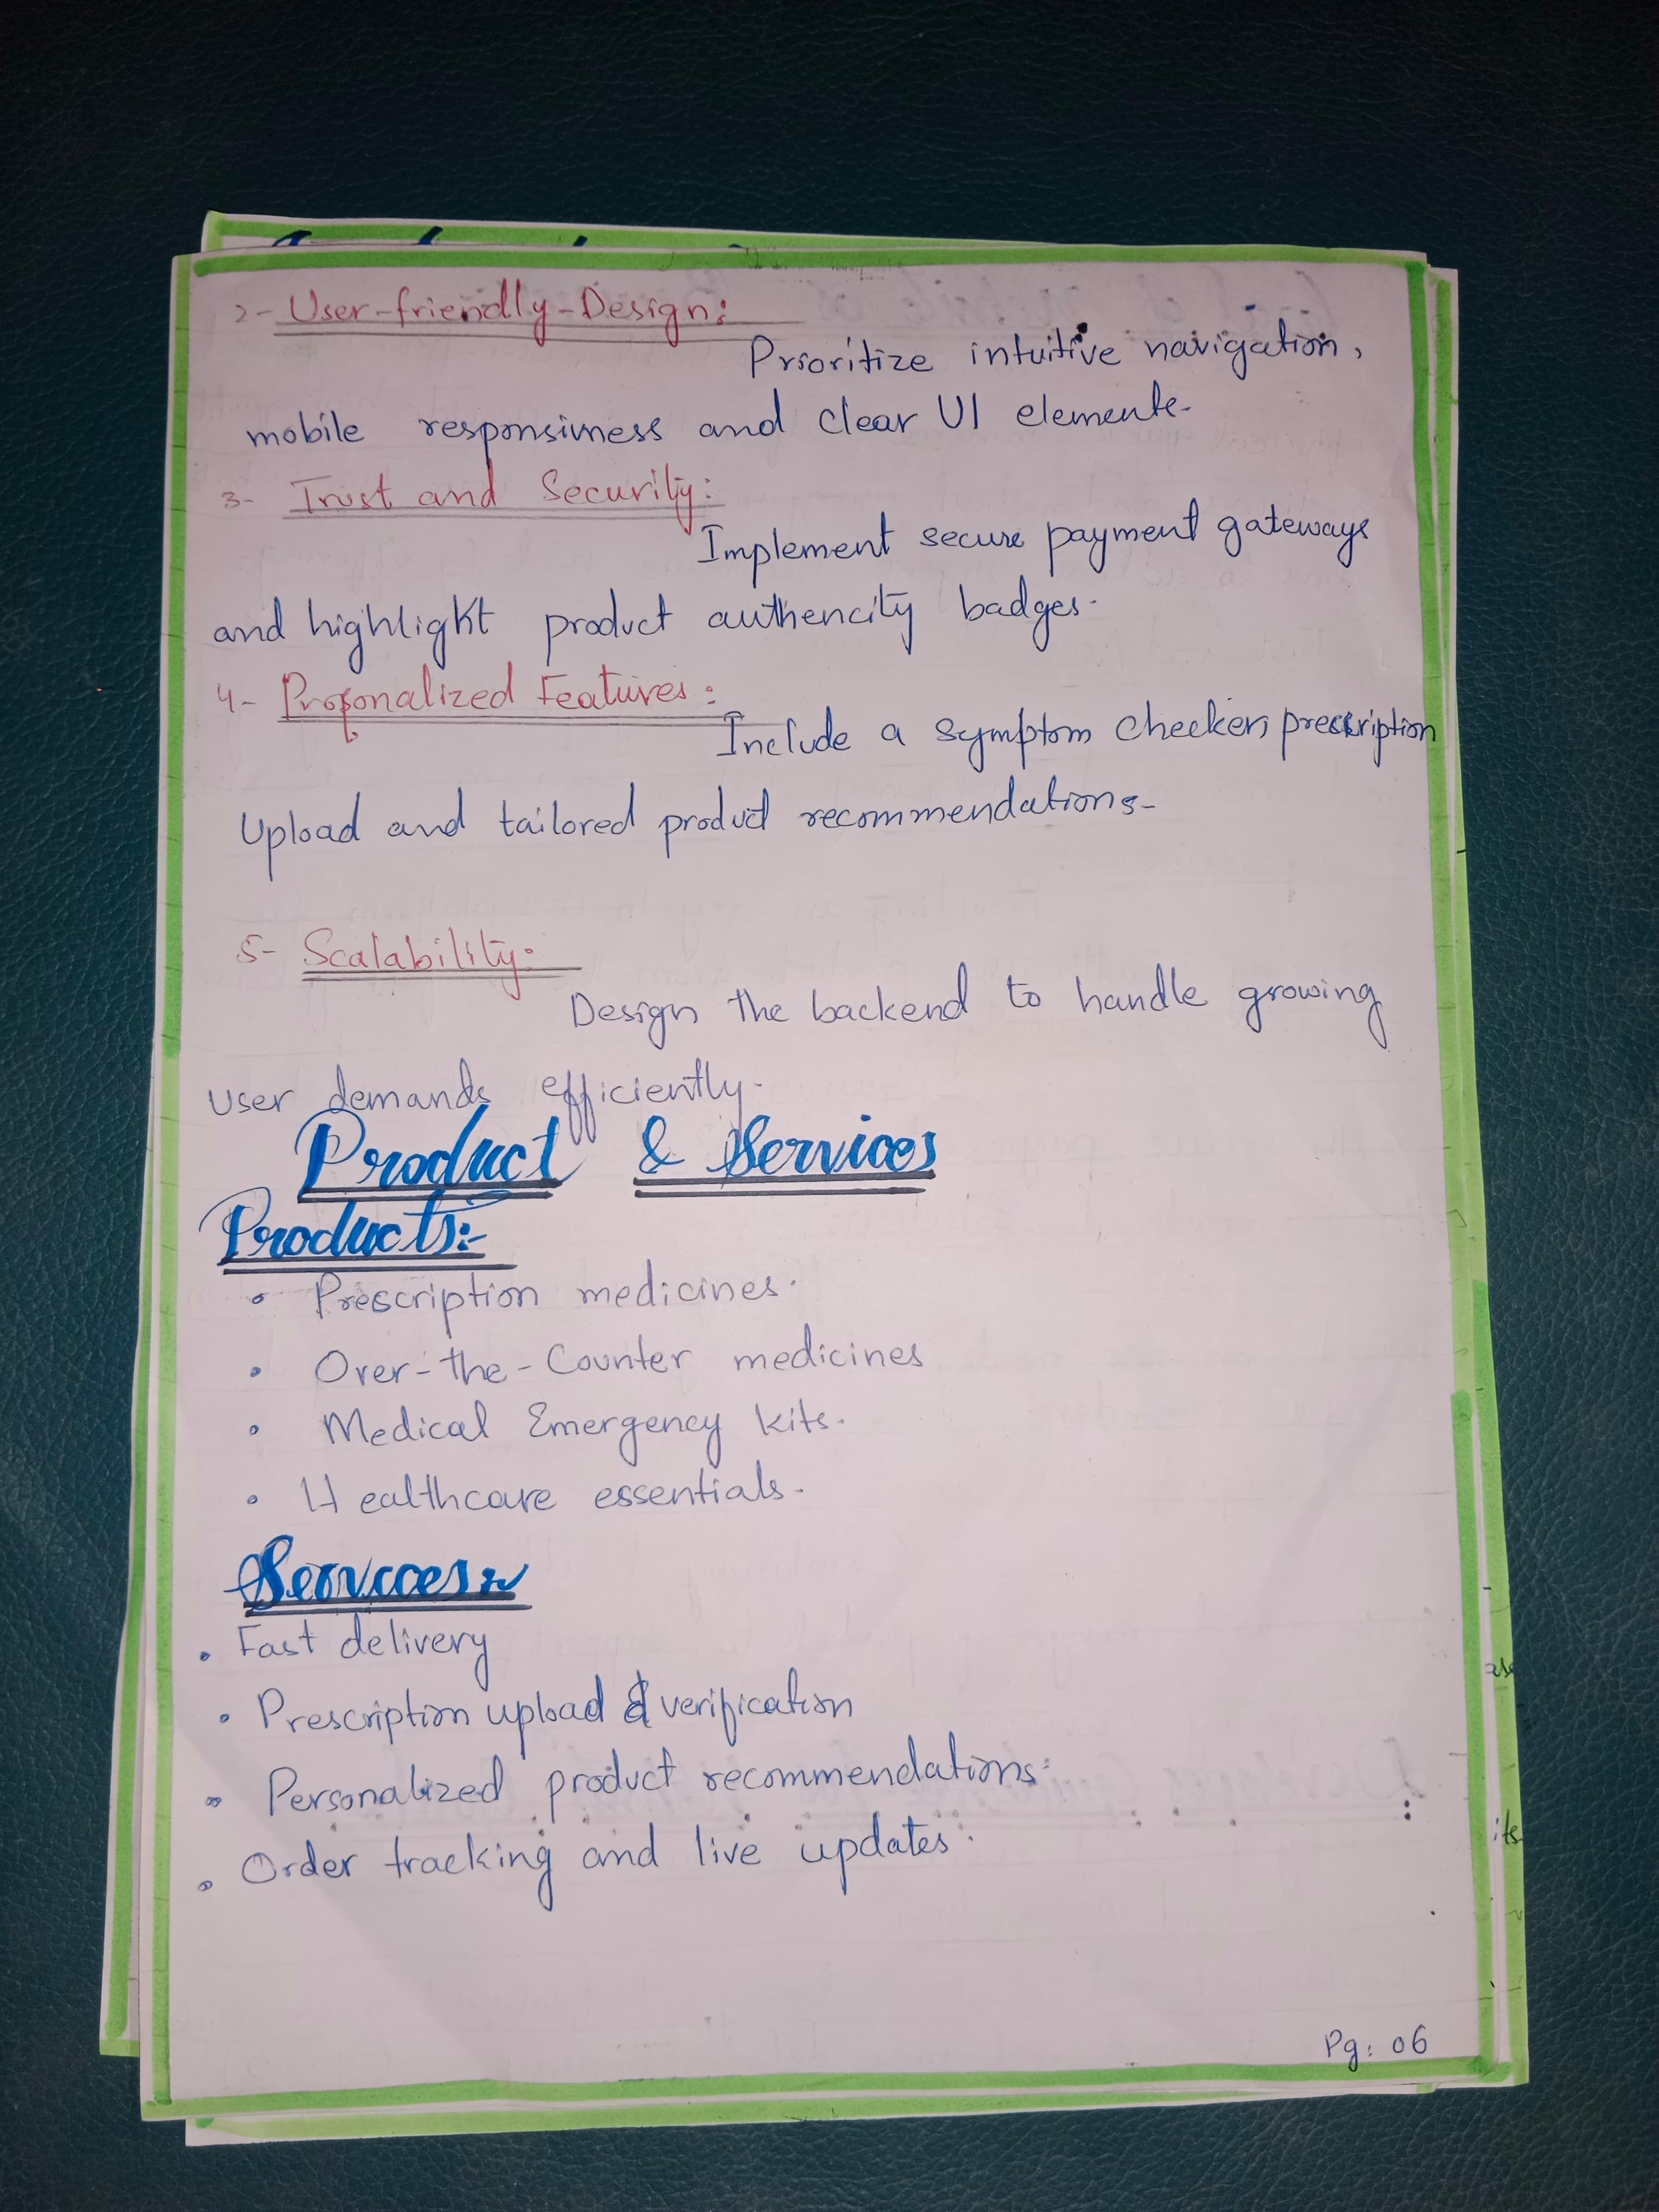 2- User-friendly-Design:
Prioritize intuitive navigation,
mobile responsivness and clear UI elements-
3- Trust and Security:
Implement secure payment gateways
and highlight product authencity badges.
4- Prosonalized Features:
Include a symptom checker, prescription
Upload and tailored product recommendations-
5- Scalability:
Design the backend to handle growing
User demands efficiently.
Product & Services
Products:-
• Prescription medicines.
• Over-the-Counter medicines
• Medical Emergency kits.
• Healthcare essentials.
Services:~
• Fast delivery
• Prescription upload & verification
• Personalized product recommendations.
• Order tracking and live updates.
Pg: 06